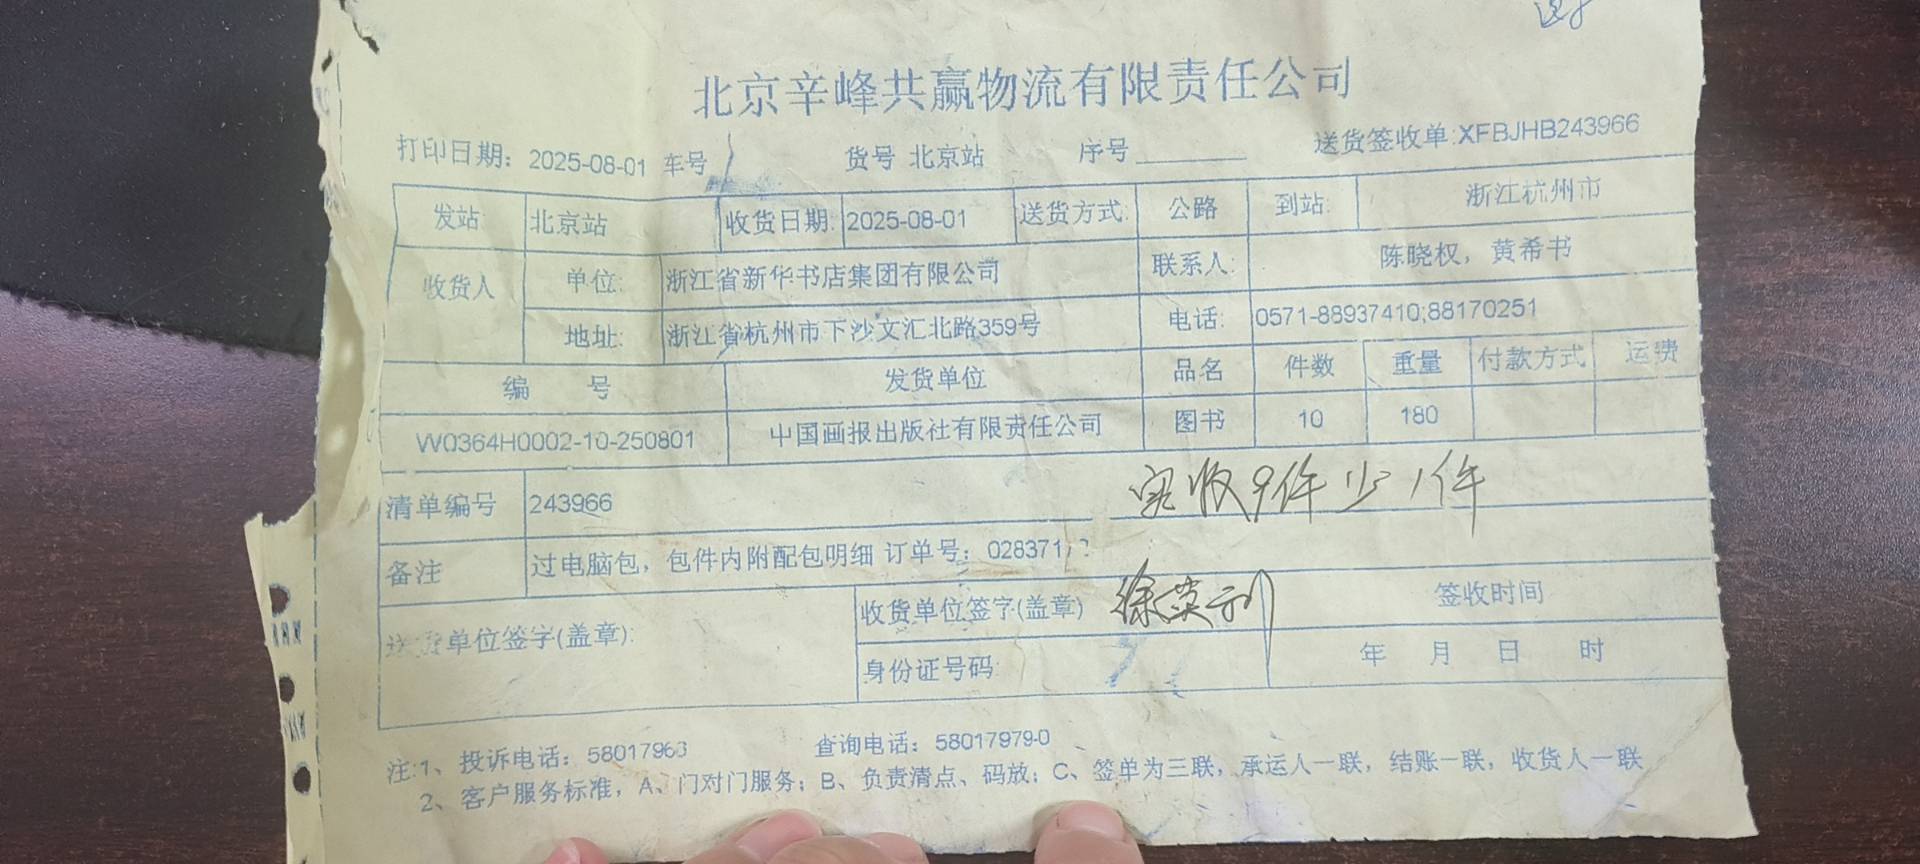 北京辛峰共赢物流有限责任公司
打印日期：2025-08-01 车号 货号 北京站 序号 送货签收单:XFBJHB243966
发站: 北京站 收货日期: 2025-08-01 送货方式: 公路 到站: 浙江杭州市
收货人 单位: 浙江省新华书店集团有限公司 联系人: 陈晓权，黄希书
地址: 浙江省杭州市下沙文汇北路359号 电话: 0571-88937410;88170251
编 号 发货单位 品名 件数 重量 付款方式 运费
W0364H0002-10-250801 中国画报出版社有限责任公司 图书 10 180
清单编号 243966 实收9件少1件
备注 过电脑包，包件内附配包明细 订单号：028371
送货单位签字(盖章): 收货单位签字(盖章) 签收时间
身份证号码: 年 月 日 时
注:1、投诉电话：58017963 查询电话：58017979-0
2、客户服务标准，A、门对门服务；B、负责清点、码放；C、签单为三联，承运人一联，结账一联，收货人一联